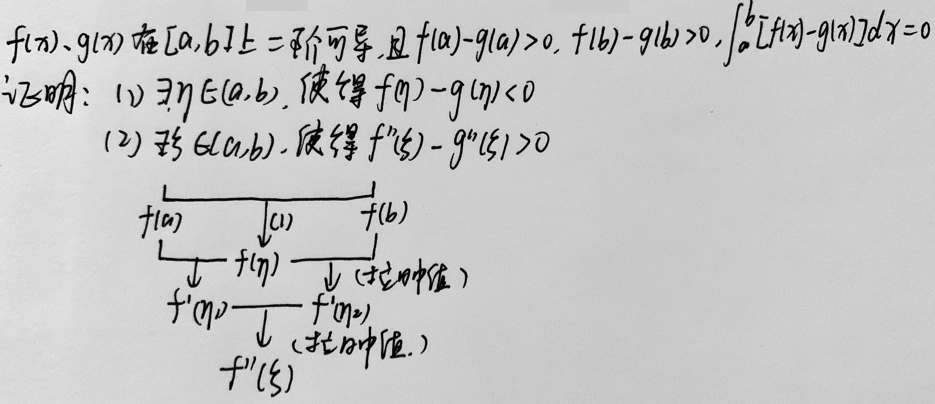 f(x)、g(x)在[a,b]上二阶可导,且f(a)-g(a)>0, f(b)-g(b)>0, ∫_a^b[f(x)-g(x)]dx=0
证明: (1) ∃η∈(a,b), 使得f(η)-g(η)<0
(2) ∃ξ∈(a,b), 使得f''(ξ)-g''(ξ)>0
f(a) (1) f(b)
f(η) (拉中值)
f'(η₁) f'(η₂)
(拉中值.)
f''(ξ)